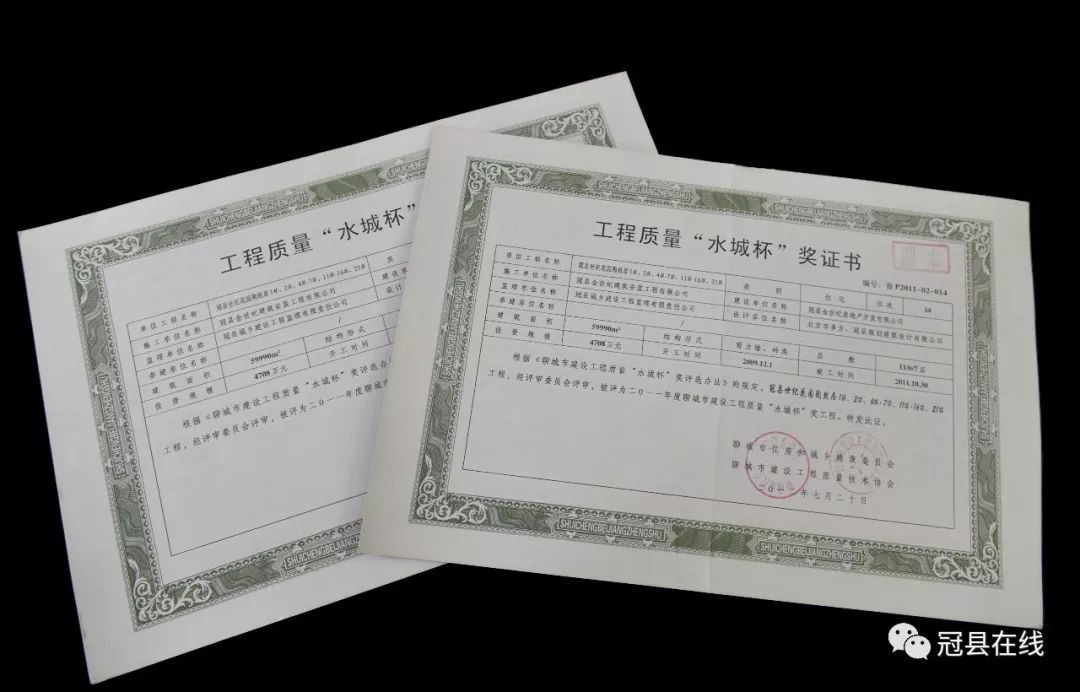 SHUICHENGBEIJIANGZHENGSHU
工程质量“水城杯”
单位工程名称 冠县世纪花园陶然居1#、2#、4#-7#、11#-16#、21# 类
施工单位名称 冠县金世纪建筑安装工程有限公司 建设单
监理单位名称 冠县城乡建设工程监理有限责任公司 设计
参建单位名称 /
建筑面积 59990m² 结构形式
投资规模 4708万元 开工时间
根据《聊城市建设工程质量“水城杯”奖评选办
工程，经评审委员会评审，被评为二〇一一年度聊城
SHUICHENGBEIJIANGZHENGSHU
SHUICHENGBEIJIANGZHENGSHU
SHUICHENGBEIJIANGZHENGSHU
工程质量“水城杯”奖证书
副本
编号：鲁P2011-02-014
单位工程名称 冠县世纪花园陶然居1#、2#、4#-7#、11#-16#、21# 类别 住宅 位次 14
施工单位名称 冠县金世纪建筑安装工程有限公司 建设单位名称 冠县金世纪房地产开发有限公司
监理单位名称 冠县城乡建设工程监理有限责任公司 设计单位名称 北京市多方、冠县规划建筑设计有限公司
参建单位名称 /
建筑面积 59990m² 结构形式 剪力墙、砖混 层数 11/6/7层
投资规模 4708万元 开工时间 2009.12.1 竣工时间 2011.10.30
根据《聊城市建设工程质量“水城杯”奖评选办法》的规定，冠县世纪花园陶然居1#、2#、4#-7#、11#-16#、21#
工程，经评审委员会评审，被评为二〇一一年度聊城市建设工程质量“水城杯”奖工程。特发此证。
聊城市住房和城乡建设委员会
聊城市建设工程质量技术协会
年七月二十日
SHUICHENGBEIJIANGZHENGSHU
SHUICHENGBEIJIANGZHENGSHU
冠县在线